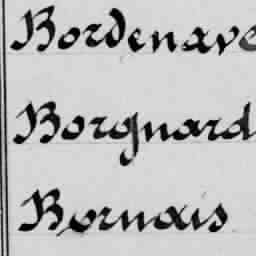 Bordenave
Borgnard
Bornais